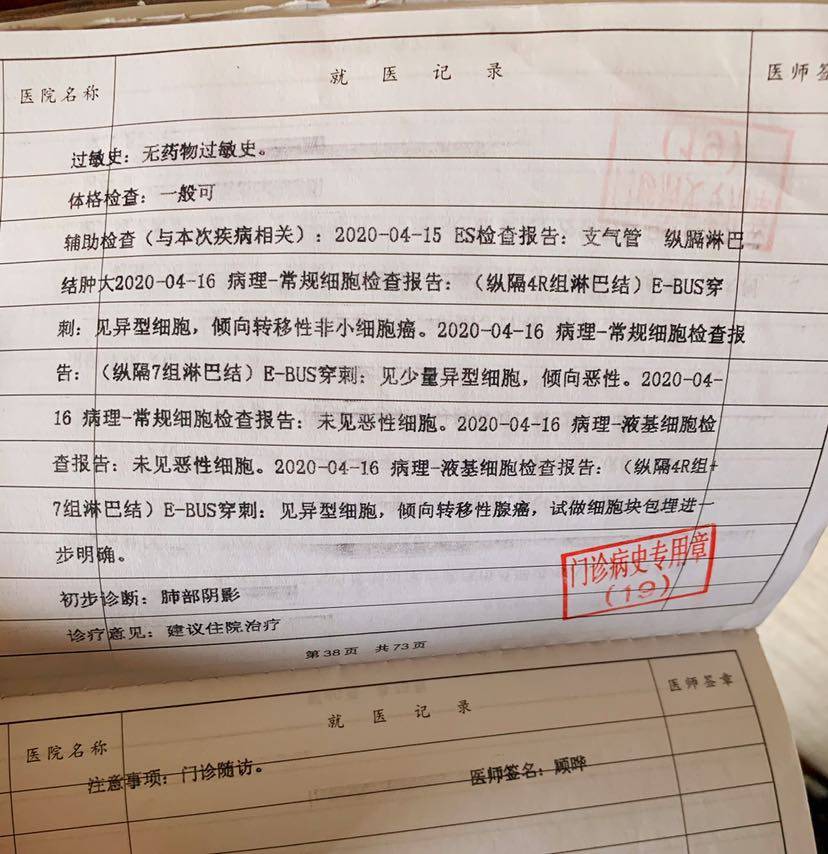 医院名称 就医记录 医师签
过敏史：无药物过敏史。
体格检查：一般可
辅助检查（与本次疾病相关）：2020-04-15 ES检查报告：支气管 纵膈淋巴
结肿大2020-04-16 病理-常规细胞检查报告：（纵隔4R组淋巴结）E-BUS穿
刺：见异型细胞，倾向转移性非小细胞癌。2020-04-16 病理-常规细胞检查报
告：（纵隔7组淋巴结）E-BUS穿刺：见少量异型细胞，倾向恶性。2020-04-
16 病理-常规细胞检查报告：未见恶性细胞。2020-04-16 病理-液基细胞检
查报告：未见恶性细胞。2020-04-16 病理-液基细胞检查报告：（纵隔4R组+
7组淋巴结）E-BUS穿刺：见异型细胞，倾向转移性腺癌，试做细胞块包埋进一
步明确。
门诊病史专用章
（19）
初步诊断：肺部阴影
诊疗意见：建议住院治疗
第38页 共73页
医院名称 就医记录 医师签章
注意事项：门诊随访。 医师签名：顾晔